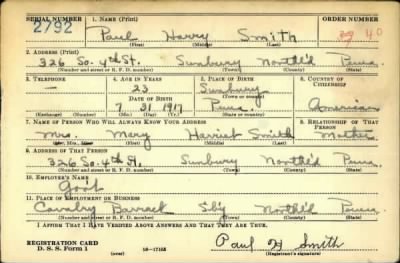 SERIAL NUMBER 1. NAME (Print) ORDER NUMBER
2792 Paul Harry Smith 40
(First) (Middle) (Last)
2. ADDRESS (Print)
326 So. 4th St. Sunbury North'd Penna.
(Number and street or R. F. D. number) (Town) (County) (State)
3. TELEPHONE 4. AGE IN YEARS 5. PLACE OF BIRTH 6. COUNTRY OF CITIZENSHIP
— 23 Sunbury
(Town or county)
DATE OF BIRTH
7 31 1917 Penna. American
(Exchange) (Number) (Mo.) (Day) (Yr.) (State or country)
7. NAME OF PERSON WHO WILL ALWAYS KNOW YOUR ADDRESS 8. RELATIONSHIP OF THAT PERSON
Mrs. Mary Harriet Smith Mother
(Mr., Mrs., Miss) (First) (Middle) (Last)
9. ADDRESS OF THAT PERSON
326 So. 4th St. Sunbury North'd Penna.
(Number and street or R. F. D. number) (Town) (County) (State)
10. EMPLOYER'S NAME
Gov't
11. PLACE OF EMPLOYMENT OR BUSINESS
Cavalry Barrack Sb'y North'd Penna.
(Number and street or R. F. D. number) (Town) (County) (State)
I AFFIRM THAT I HAVE VERIFIED ABOVE ANSWERS AND THAT THEY ARE TRUE.
REGISTRATION CARD
D. S. S. Form 1 (over) 16—17105 Paul H Smith
(Registrant's signature)